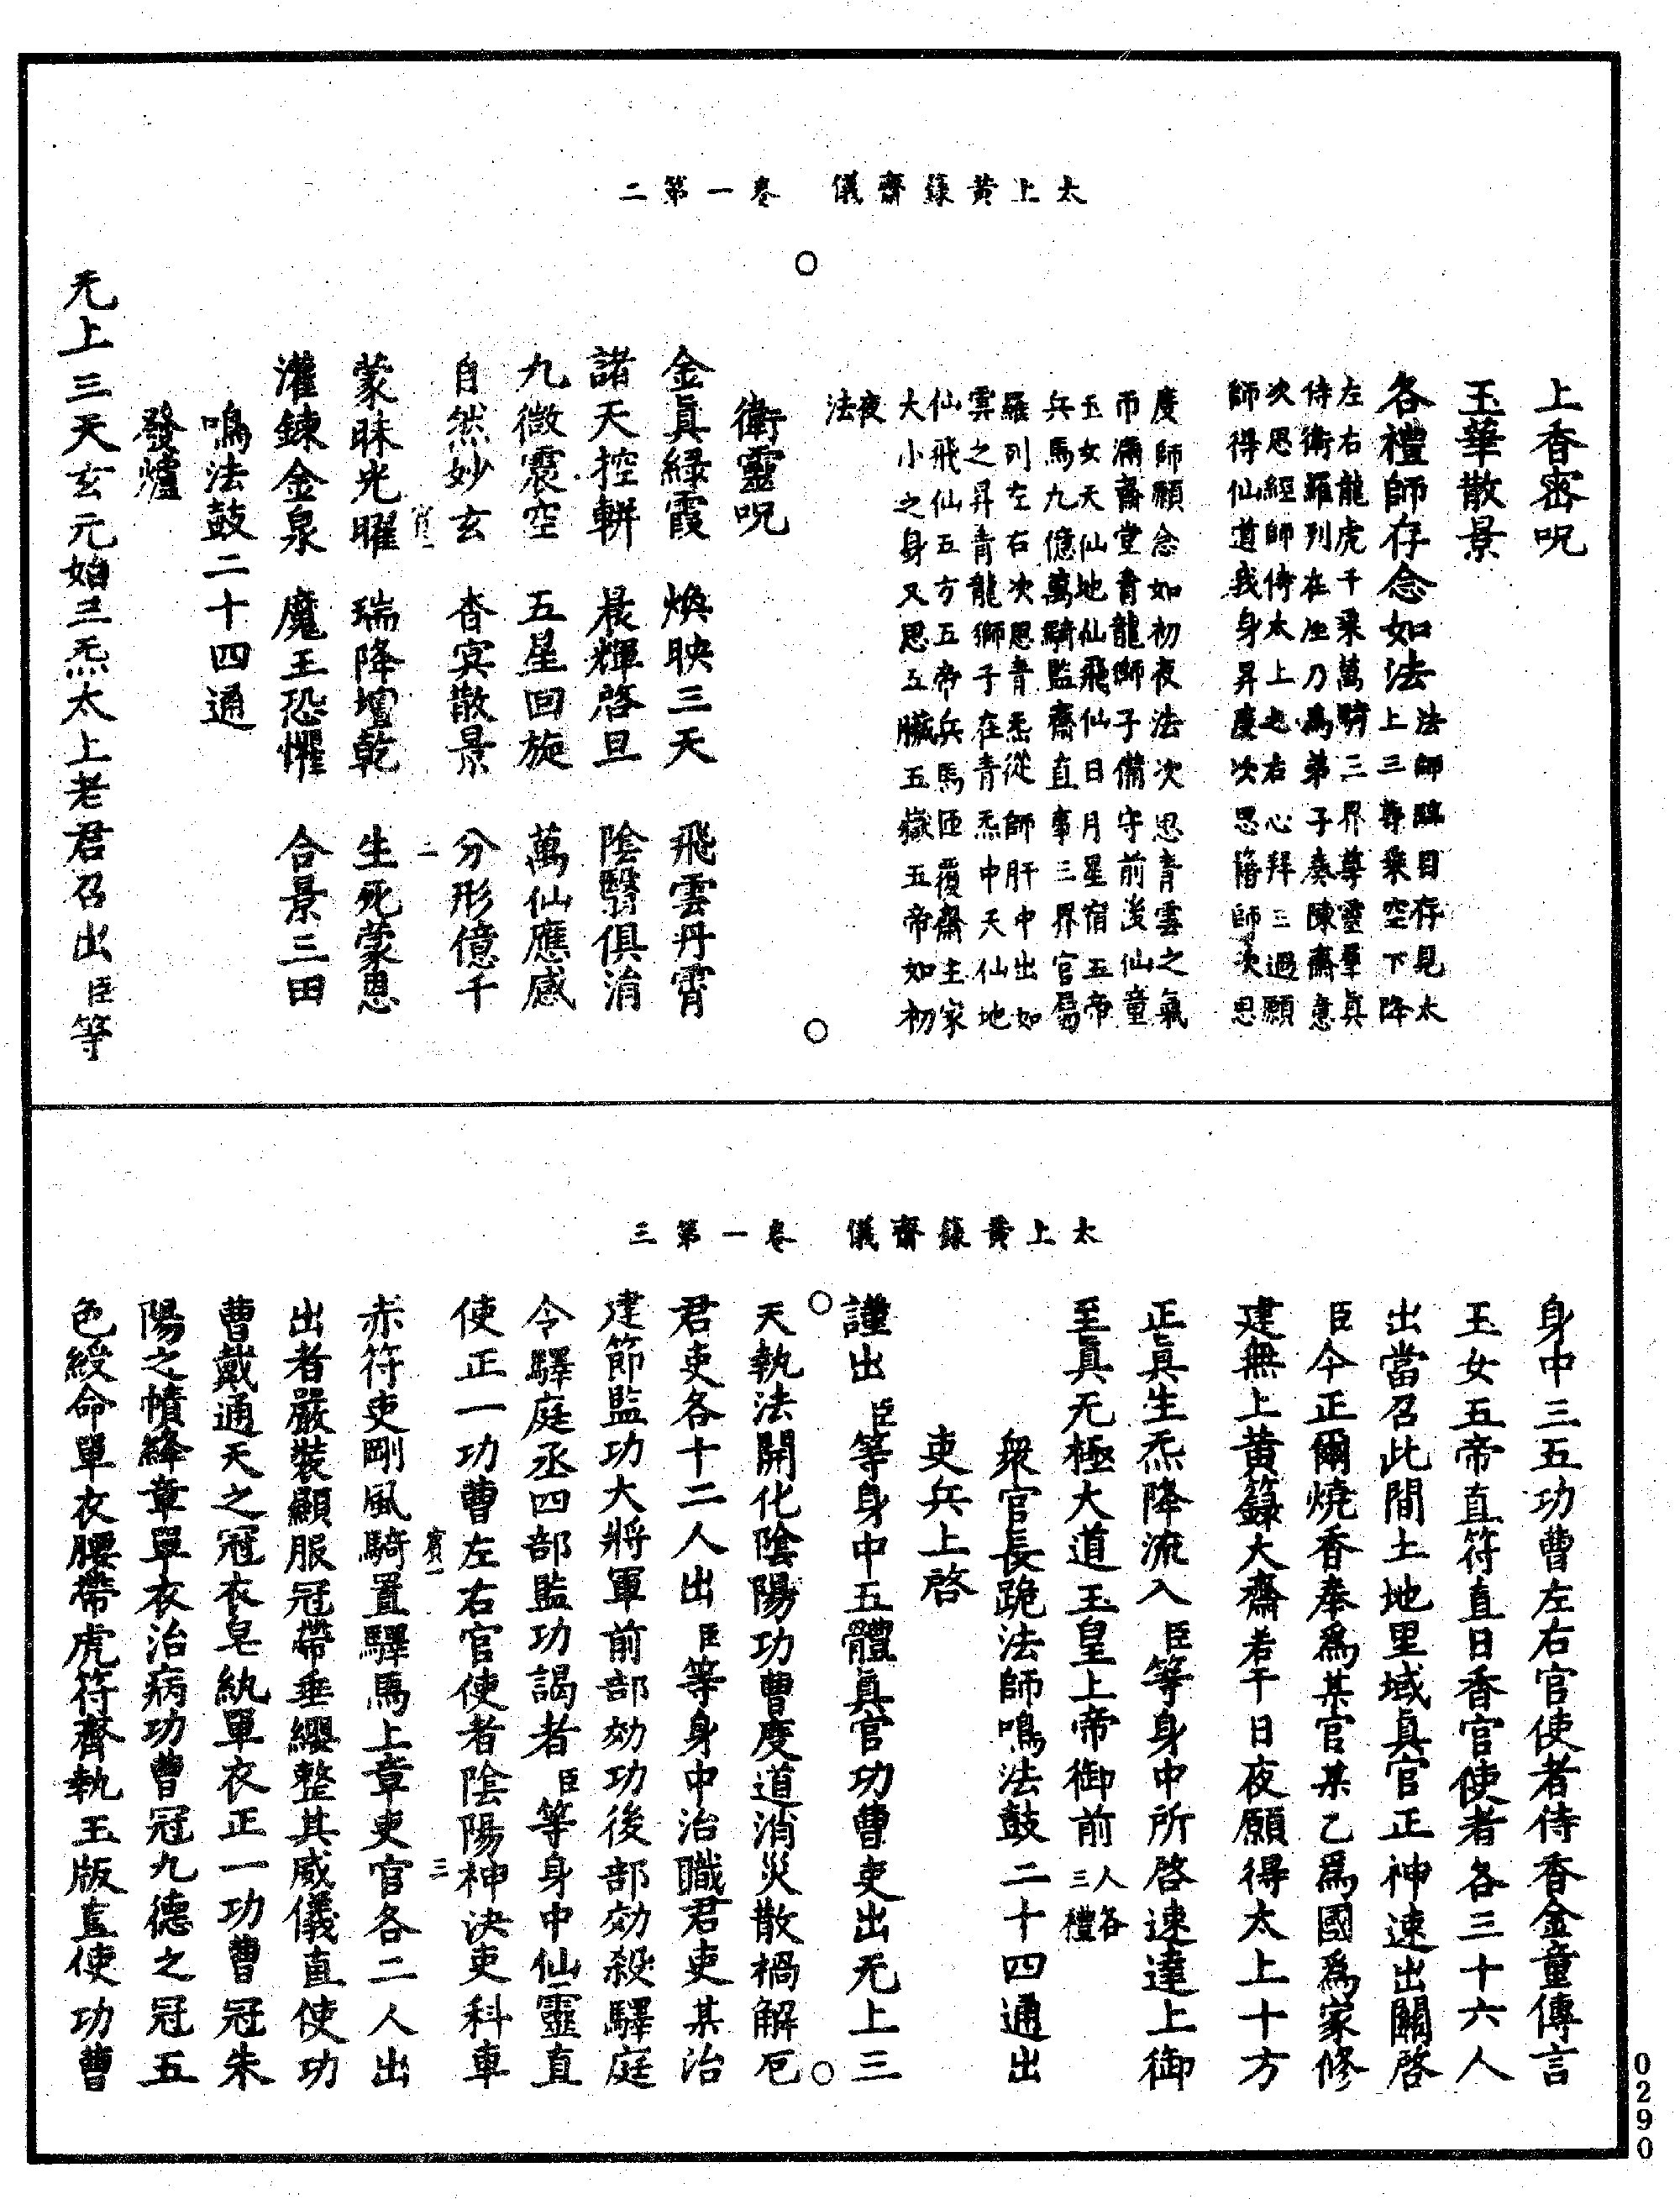 太上黃籙齋儀　卷一第二
上香密呪
玉華散景
各禮師存念如法上三尊乘空下降
法師臨目存見太
左右龍虎千乘萬騎三界尊靈羣真
侍衛羅列在座乃為弟子奏陳齋意
次思經師侍太上之右心拜三過願
師得仙道我身昇度次思籍師次思
度師願念如初夜法次思青雲之氣
帀滿齋堂青龍師子備守前後仙童
玉女天仙地仙飛仙日月星宿五帝
兵馬九億萬騎監齋直事三界官屬
羅列左右次思青炁從師肝中出如
雲之昇青龍獅子在青炁中天仙地
仙飛仙五方五帝兵馬匝覆齋主家
大小之身又思五臟五嶽五帝如初
夜法
衛靈呪
金真緑霞　煥映三天　飛雲丹霄
諸天控軿　晨輝啓旦　陰翳俱消
九微震空　五星回旋　萬仙應感
自然妙玄　杳冥散景　分形億千
二
蒙昧光曜　瑞降壇乾　生死蒙恩
灌鍊金泉　魔王恐懼　合景三田
鳴法鼓二十四通
發爐
无上三天玄元始三炁太上老君召出臣等
太上黃籙齋儀　卷一第三
身中三五功曹左右官使者侍香金童傳言
玉女五帝直符直日香官使者各三十六人
出當召此間土地里域真官正神速出關啓
臣今正爾燒香奉爲某官某乙爲國爲家修
建無上黃籙大齋若干日夜願得太上十方
正真生炁降流入臣等身中所啓速達上御
至真无極大道玉皇上帝御前人各三禮
衆官長跪法師鳴法鼓二十四通出
吏兵上啓
謹出臣等身中五體真官功曹吏出无上三
天執法開化陰陽功曹度道消災散禍解厄
君吏各十二人出臣等身中治職君吏某治
建節監功大將軍前部効功後部効殺驛庭
令驛庭丞四部監功謁者臣等身中仙靈直
使正一功曹左右官使者陰陽神決吏科車
賓一　三
赤符吏剛風騎置驛馬上章吏官各二人出
出者嚴裝顯服冠帶垂纓整其威儀直使功
曹戴通天之冠衣皂紈單衣正一功曹冠朱
陽之幘絳章單衣治病功曹冠九德之冠五
色綬命單衣腰帶虎符齊執玉版直使功曹
0290